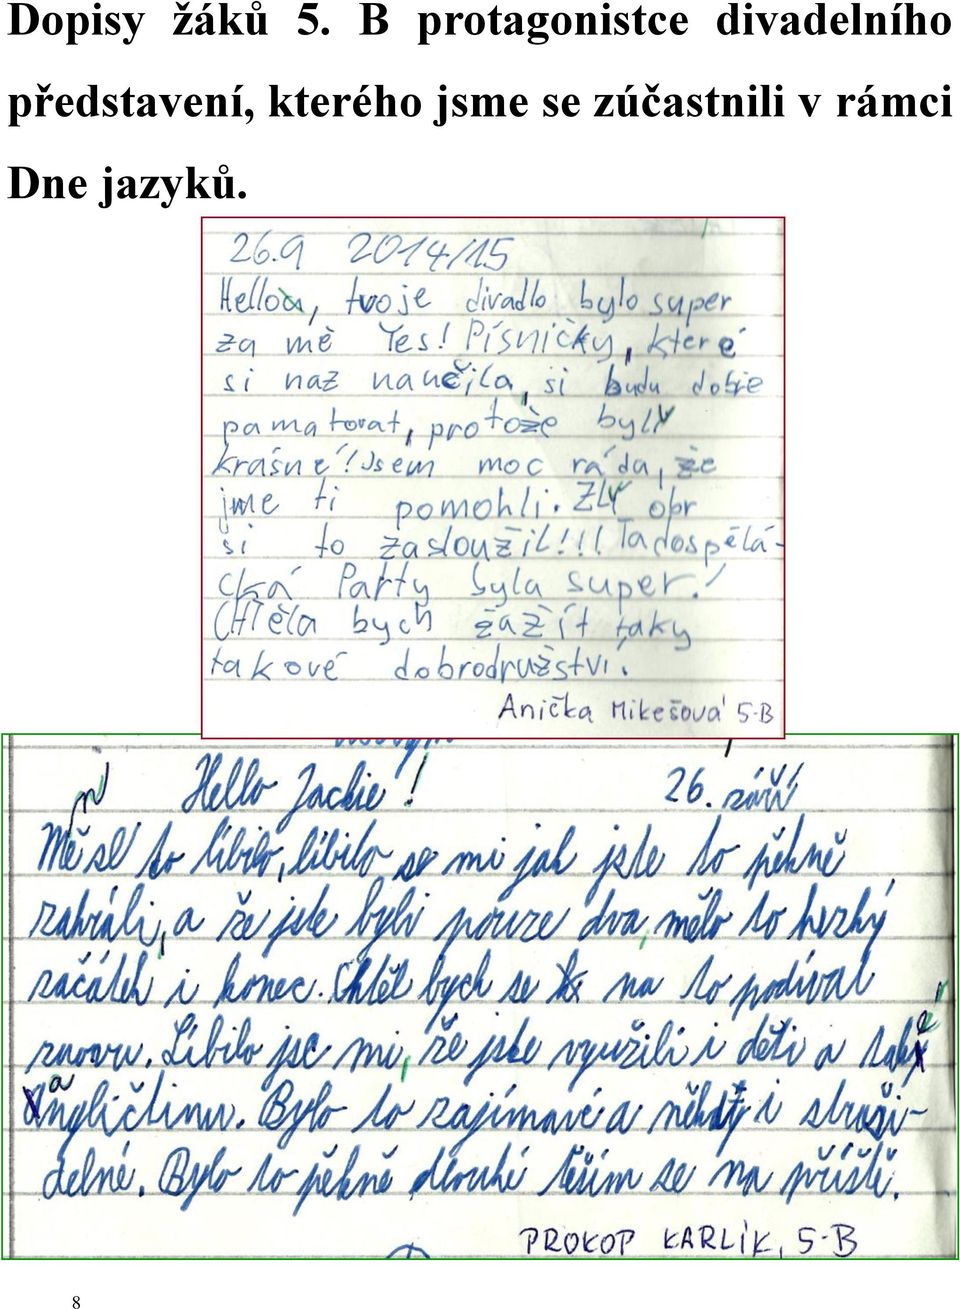 Dopisy žáků 5. B protagonistce divadelního
představení, kterého jsme se zúčastnili v rámci
Dne jazyků.
26.9 2014/15
Hello, tvoje divadlo bylo super
za mě Yes! Písničky, které
si naz naučila, si budu dobře
pamatovat, protože byly
krásné! Jsem moc ráda, že
jme ti pomohli. Zlý obr
si to zasloužil!!! Ta dospělá-
cká Party byla super!
Chtěla bych zažít taky
takové dobrodružství.
Anička Mikešová 5.B
Hello Jackie! 26. září
Mě se to líbilo, líbilo se mi jak jste to pěkně
zahráli, a že jste byli pouze dva, mělo to hezký
začátek i konec. Chtěl bych se na to podívat
znovu. Líbilo jse mi, že jste využili i děti a také
angličtinu. Bylo to zajímavé a někdy i straši-
delné. Bylo to pěkně dlouhé těším se na příště.
PROKOP KARLÍK, 5.B
8